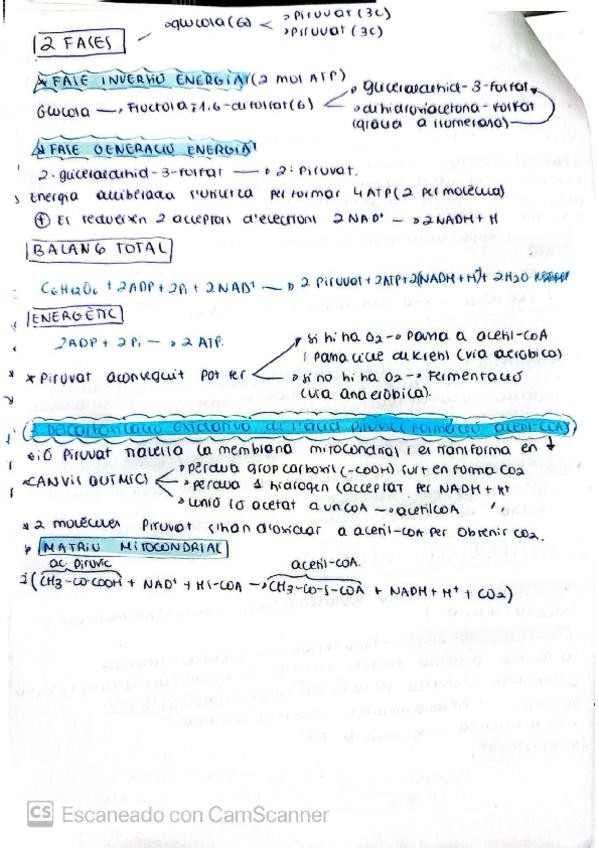 2 FASES
→ glucosa (6) < → Piruvat (3C)
→ Piruvat (3C)
* FASE INVERSIÓ ENERGIA (2 mol ATP)
Glucosa → Fructosa-1,6-difosfat (6) < gliceraldehid-3-fosfat
dihidroxiacetona-fosfat
(gràcies a isomerasa)
* FASE GENERACIÓ ENERGIA
2. gliceraldehid-3-fosfat → 2: Piruvat.
Energia alliberada s'utilitza per formar 4 ATP (2 per molècula)
⊕ Es redueixen 2 acceptors d'electrons 2 NAD⁺ → 2 NADH + H
BALANÇ TOTAL
C6H12O6 + 2ADP + 2Pi + 2NAD⁺ → 2 Piruvat + 2ATP + 2(NADH + H)⁺ + 2H2O
ENERGÈTIC
2ADP + 2Pi → 2 ATP.
* Piruvat aconseguit pot ser
si hi ha O2 → Passa a acetil-CoA
i passa cicle de Krebs (via aeròbica)
si no hi ha O2 → Fermentació
(via anaeròbica).
Descarboxilació oxidativa de l'àcid pirúvic (formació acetil-CoA)
ió Piruvat travessa la membrana mitocondrial i es transforma en ↓
* CANVIS QUÍMICS
→ pèrdua grup carboxil (-COOH) surt en forma CO2
→ pèrdua 1 hidrogen (acceptat per NADH + H⁺
→ unió ió acetat a un CoA → acetilCoA
* 2 molècules Piruvat s'han d'oxidar a acetil-CoA per obtenir CO2.
* MATRIU MITOCONDRIAL
ac. Pirúvic acetil-CoA.
2 (CH3-CO-COOH + NAD⁺ + HS-COA → CH3-CO-S-COA + NADH + H⁺ + CO2)
CS Escaneado con CamScanner